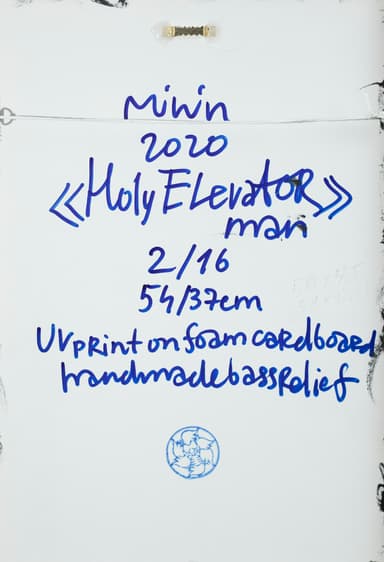 Miwin
2020
«Holy Elevator
man»
2/16
54/37cm
UV print on foam cardboard
handmade bass relief